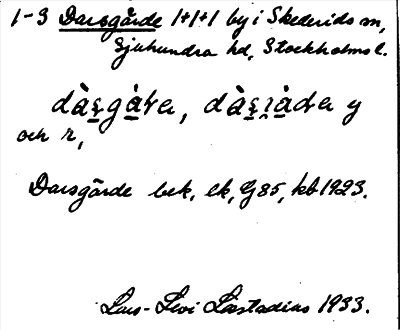 1-3 Darsgärde 1+1+1 by i Skederids sn,
Sjuhundra hd, Stockholms l.
dà̱ṣgà̱ṭa, dà̱ṣi̯à̱ḍa y
och r,
Darsgärde bek, ek, G85, kb 1923.
Lars-Levi Læstadius 1933.